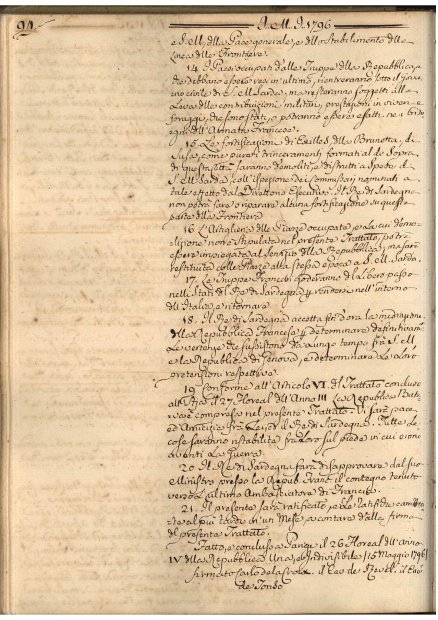 94.
I. M. I. 1796
e S. M. della Pace generale, e dello Stabilimento delle
Linee delle Frontiere.
14. I Paesi occupati dalle Truppe della Repubblica,
che debbano essere resi in ultimo, rientreranno sotto il Gover-
no civile di S. M. Sarda, ma resteranno soggetti alla
Leva delle contribuzioni militari, prestazioni in viveri e
foraggi, che sono stati, o potranno essere esatti ne' biso-
gni dell'Armata Francese.
15. Le fortificazioni di Exilles, della Brunetta, di
Susa, come pure i trinceramenti formati al di sopra
di questa Città saranno demoliti, e distrutti a spese di
S. M. Sarda, coll'ispezione dei Commissarj nominati a
tale effetto dal Direttorio Esecutivo. Il Re di Sardegna
non potrà fare o riparare alcuna fortificazione su questa
parte della Frontiera
16. L'Artiglieria delle Piazze occupate, e la cui demo-
lizione non è stipulata nel presente Trattato, potrà
essere impiegata al servizio della Repubblica, ma sarà
restituita colle Piazze alla stessa epoca a S. M. Sarda.
17. Le Truppe Francesi goderanno del libero passo
nelli Stati del Re di Sardegna per rendersi nell'interno
dell'Italia, e ritornare.
18. Il Re di Sardegna accetta fin d'ora la mediazione
della Repubblica Francese per determinare definitivamte.
Le vertenze che sussistono da lungo tempo frà S. M.
e la Repubblica di Genova, e determinare le loro
pretensioni respettive.
19. Conforme all'Articolo VI. del Trattato concluso
all'Aja il 27 Floreal dell'Anno III. La Repubblica Bata-
va è compresa nel presente Trattato. Vi sarà pace
ed Amicizia frà Lei, ed il Re di Sardegna. Tutte le
cose saranno ristabilite fra loro sul piede in cui erano
avanti la Guerra.
20. Il Re di Sardegna farà disapprovare dal suo
Ministro presso la Repub. Franc. il contegno tenuto
verso l'ultimo Ambasciatore di Francia.
21. Il presente sarà ratificato, e le ratifiche cambia-
te al più tardi in un Mese, a contare dalla firma
del presente Trattato.
Fatto, e concluso a Parigi il 26 Floreal dell'Anno
IV della Repubblica Una, ed Indivisibile (15 Maggio 1796)
firmato Carlo delacroix. il Cav. de Revel. il Cav.
de Tonso